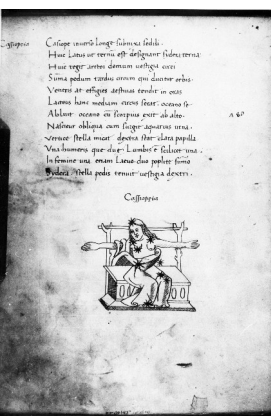 Cassiopeia
Casiepe inverso longe submixa sedili.
Huic Latus ut ternu est designant sidera terna
Huic tegit artos demum vestigia circi
Suma pedum tardus circum qui ducitur orbis.
Ventris at effigies aestivas tendit in oras
Lacteus hanc mediam circus secat. oceano se
Abluit oceano cu scorpius exit ab alto.
Nascitur obliqua cum surgit aquarius urna.
Vertice stella micat dextra stat clara papilla
Una humeris que due Lumbis e scilicet una.
In femine una etiam Laevo duo poplite sumo
Sydera stella pedis tenuit vestigia dextri.
Cassieppia